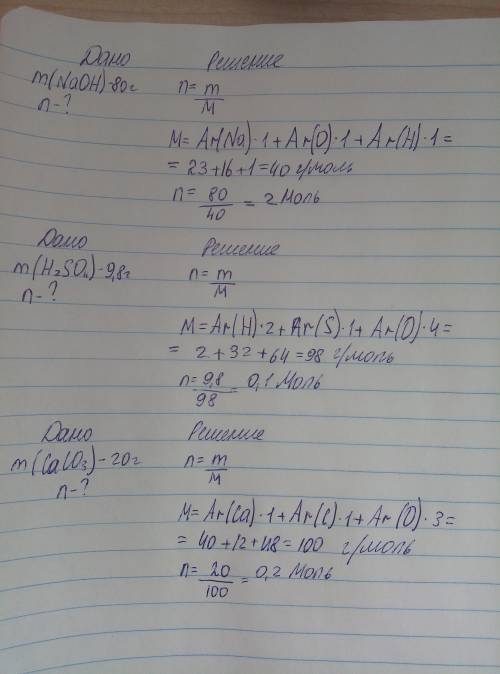 Дано Решение
m(NaOH)-80г n=m/M
n-?
M=Ar(Na)·1+Ar(O)·1+Ar(H)·1=
=23+16+1=40 г/моль
n=80/40=2 Моль
Дано Решение
m(H₂SO₄)-9,8г n=m/M
n-?
M=Ar(H)·2+Ar(S)·1+Ar(O)·4=
= 2+32+64=98 г/моль
n=9,8/98=0,1 Моль
Дано Решение
m(CaCO₃)-20г n=m/M
n-?
M=Ar(Ca)·1+Ar(C)·1+Ar(O)·3=
=40+12+48=100 г/моль
n=20/100=0,2 Моль